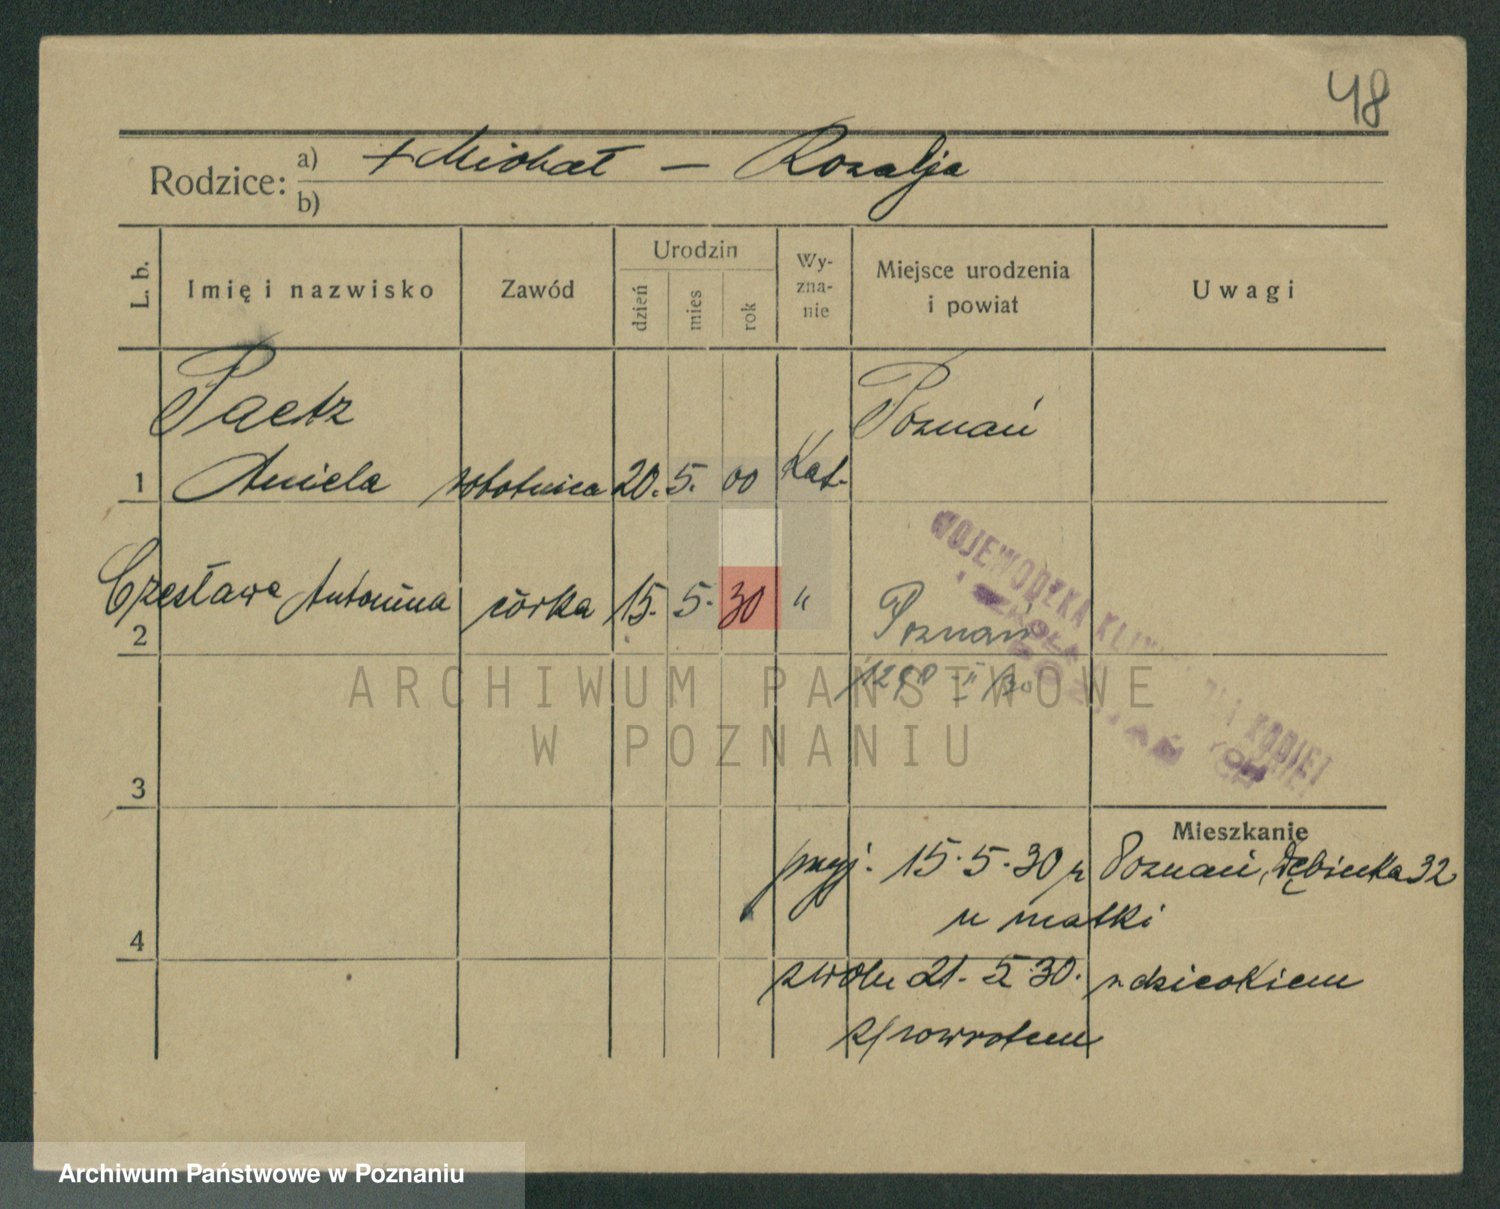 48
Rodzice: a) + Michał — Rozalja
b)
L. b. Imię i nazwisko Zawód Urodzin dzień mies rok Wy-zna-nie Miejsce urodzenia i powiat Uwagi
Paetz Poznań
1 Aniela robotnica 20. 5. 00 Kat.
Czesława Antonina córka 15. 5. 30 " Poznań
2
WOJEWÓDZKA KLINIKA DLA KOBIET
I SZKOŁA
POZNAŃ
ARCHIWUM PAŃSTWOWE
W POZNANIU
3
Mieszkanie
przyj. 15.5.30 z Poznań, Dębinka 32
u matki
4
zwoln 21. 5 30. z dzieckiem
zpowrotem
Archiwum Państwowe w Poznaniu